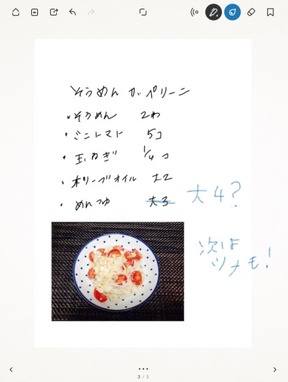 そうめん カッペリーニ
・そうめん 2わ
・ミニトマト 5コ
・玉ねぎ 1/4コ
・オリーブオイル 大2
・めんつゆ 大3 大4?
次は
ツナも!
3/3